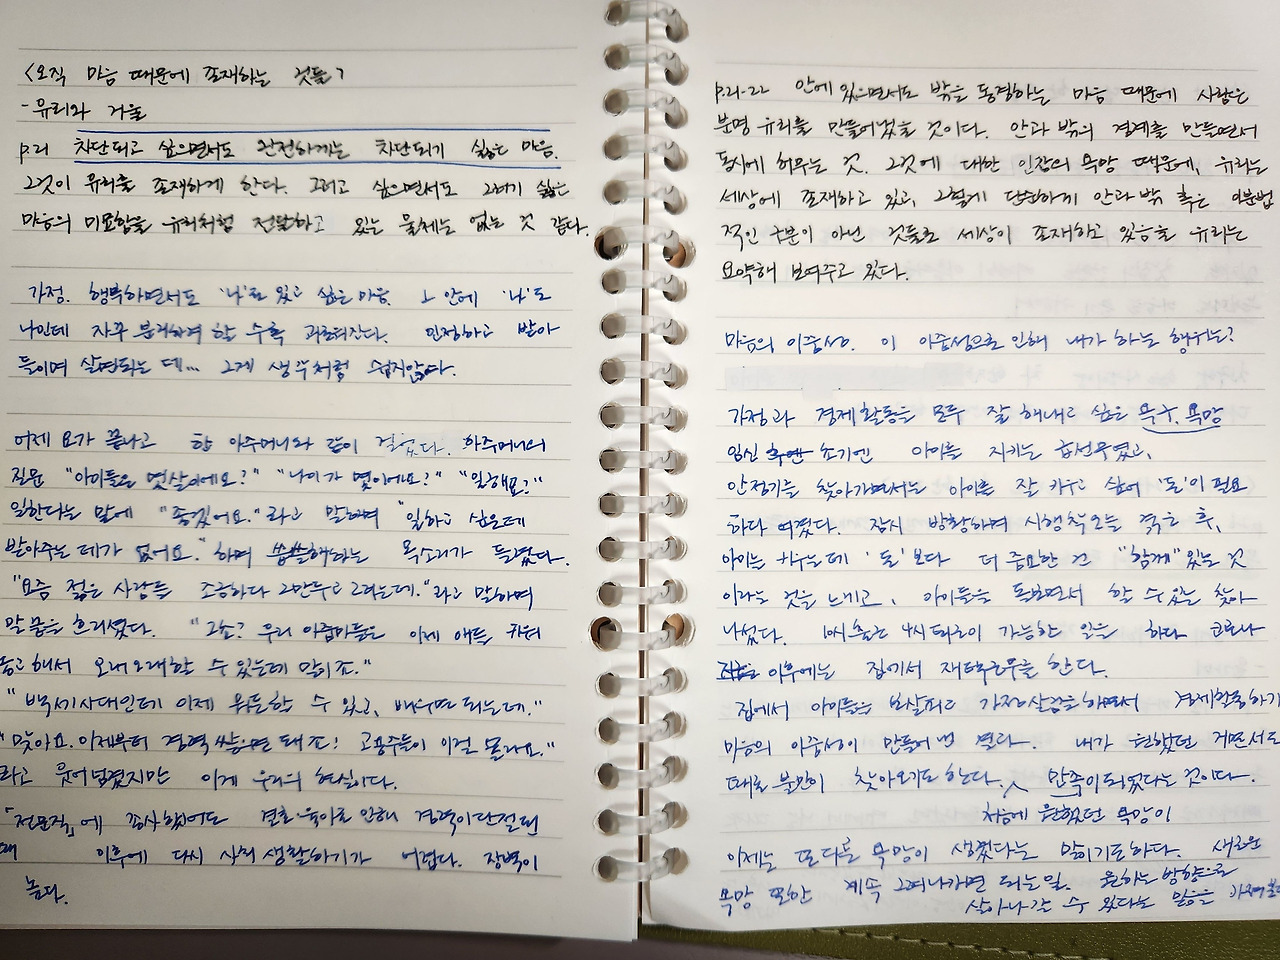 <오직 마음 때문에 존재하는 것들>
- 유리와 거울
p.21 차단되고 싶으면서도 완전하게는 차단되기 싫은 마음.
그것이 유리를 존재하게 한다. 그러고 싶으면서도 그러기 싫은
마음의 미묘함을 유리처럼 전달하고 있는 물체는 없는 것 같다.
가정. 행복하면서도 '나'로 있고 싶은 마음. 그 안에 '나'도
나인데 자꾸 분리하려 할 수록 괴로워진다. 인정하고 받아
들이며 살면되는 데... 그게 생각처럼 쉽지않다.
어제 요가 끝나고 한 아주머니와 같이 걸었다. 아주머니의
질문 "아이들은 몇살이에요?" "나이가 몇이에요?" "일해요?"
일한다는 말에 "좋겠어요."라고 말하며 "일하고 싶은데
받아주는 데가 없어요." 하며 씁쓸해하는 목소리가 들렸다.
"요즘 젊은 사람들 조금하다 그만두고 그러는데."라고 말하며
말끝을 흐리셨다. "그쵸? 우리 아줌마들은 이제 애들 키워
놓고 해서 오래오래할 수 있는데 말이죠."
"백세시대인데 이제 뭐든할 수 있고, 배우면 되는데."
"맞아요. 이제부터 경력 쌓으면 돼죠! 고용주들이 이걸 몰라요."
라고 웃어넘겼지만 이게 우리의 현실이다.
「전문직」에 종사했어도 결혼 육아로 인해 경력이단절된
때 이후에 다시 사회생활하기가 어렵다. 장벽이
높다.
p.21-22 안에 있으면서도 밖을 동경하는 마음 때문에 사람은
분명 유리를 만들어냈을 것이다. 안과 밖의 경계를 만들면서
동시에 허무는 것. 그것에 대한 인간의 욕망 때문에, 유리는
세상에 존재하고 있고, 그렇게 단순하게 안과 밖 혹은 이분법
적인 구분이 아닌 것들로 세상이 존재하고 있음을 유리는
요약해 보여주고 있다.
마음의 이중성. 이 이중성으로 인해 내가 하는 행위는?
가정과 경제활동을 모두 잘 해내고 싶은 욕구. 욕망
임신 초기엔 아이를 지키는 급선무였고,
안정기를 찾아가면서는 아이를 잘 키우고 싶어 '돈'이 필요
하다 여겼다. 잠시 방황하며 시행착오를 겪은 후,
아이를 키우는데 '돈'보다 더 중요한 건 "함께" 있는 것
이라는 것을 느끼고, 아이들을 돌보면서 할 수 있는 찾아
나섰다. 10시출근 4시퇴근이 가능한 일을 하다 코로나
이후에는 집에서 재택근무를 한다.
집에서 아이들을 보살피고 가정살림을하면서 경제활동하기
마음의 이중성이 만들어 낸 결과. 내가 원했던 거면서도
때로 불만이 찾아오기도 한다. 만족이되었다는 것이다.
처음에 원했던 욕망이
이제는 또다른 욕망이 생겼다는 말이기도하다. 새로운
욕망 또한 계속 그려나가면 되는일. 원하는 방향으로
살아나갈 수 있다는 믿음을 가져본다